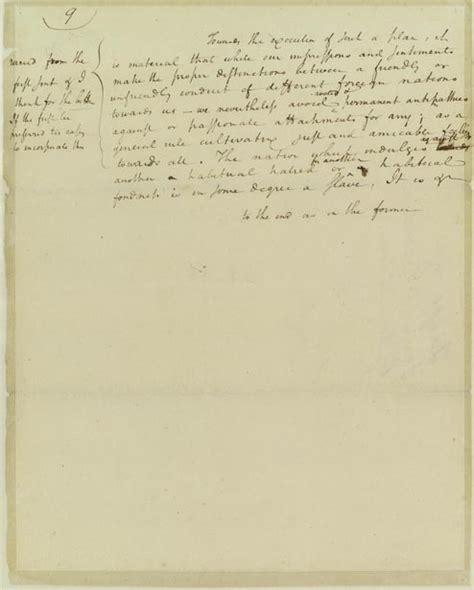 9
varied from the
first sent of I
think for the better
If the first be
preferred tis easy
to incorporate this
Towards the execution of such a plan, it
is material that while our impressions and sentiments
make the proper distinctions between a friendly or
unfriendly conduct of different foreign nations
rooted &
towards us – we nevertheless avoid permanent antipathies
against or passionate attachments for any; as a
general rule cultivating just and amicable feelings
towards all. The nation which indulges against
another a habitual hatred or in another a habitual
fondness is in some degree a slave, It is &
to the end as in the former